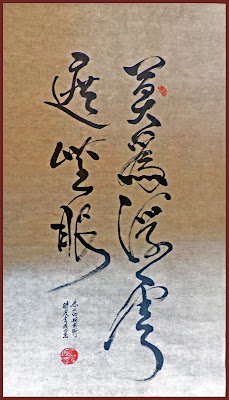 莫為浮雲
遮望眼